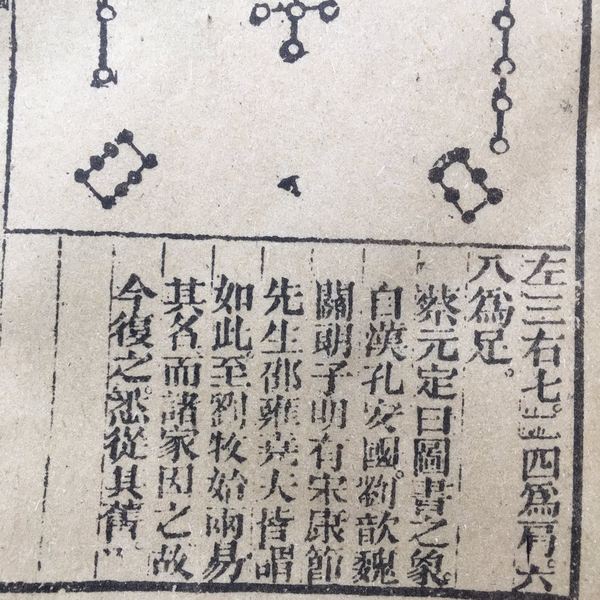 左三右七。四爲肩。六
八爲足。
蔡元定曰圖書之象。
自漢孔安國。劉歆魏
關朗子明有宋康節
先生邵雍堯夫皆謂
如此。至劉牧始兩易
其名而諸家因之故
今復之。悉從其舊。